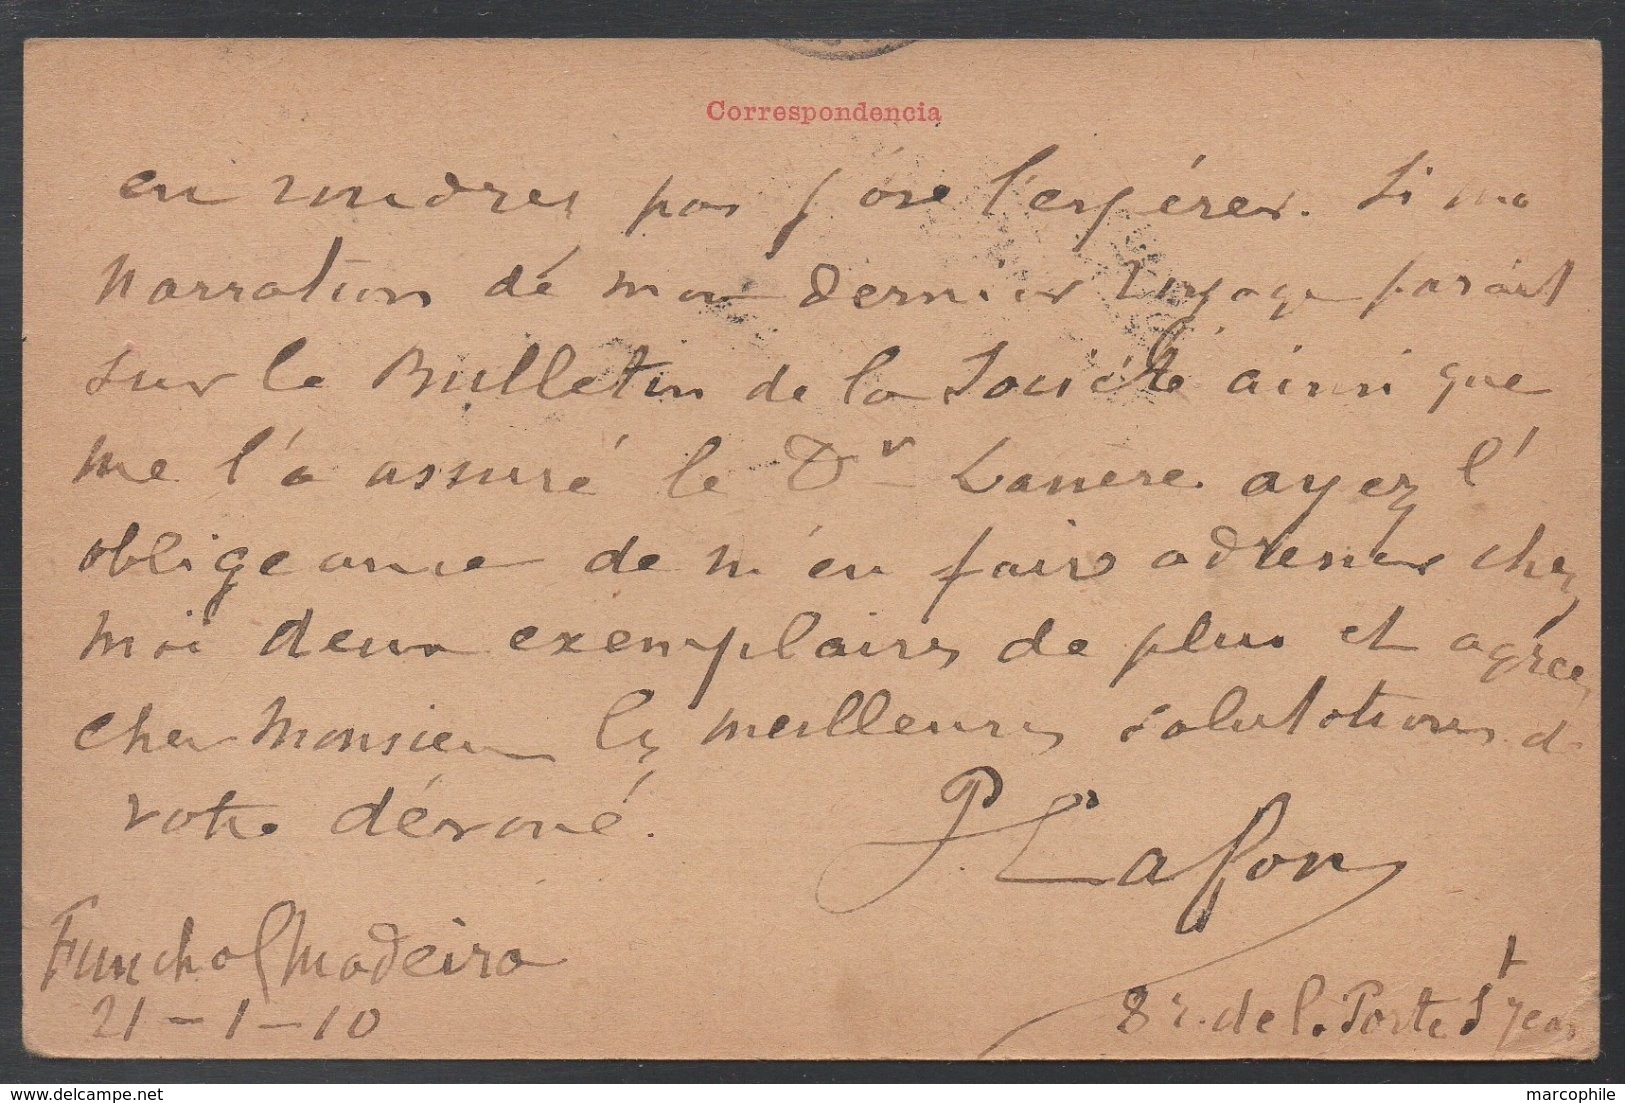 Correspondencia
en voudrez pas j'ose l'espérer. Si ma
narration de mon dernier voyage parait
sur le Bulletin de la Société ainsi que
me l'a assuré le Dr ayez l'
obligeance de m'en faire adresser chez
moi deux exemplaires de plus et agréez
cher Monsieur les meilleures salutations d
votre dévoué.
P. Lafon
Funchal Madeira
21-1-10
8 r. de la Porte St Jean
marcophile